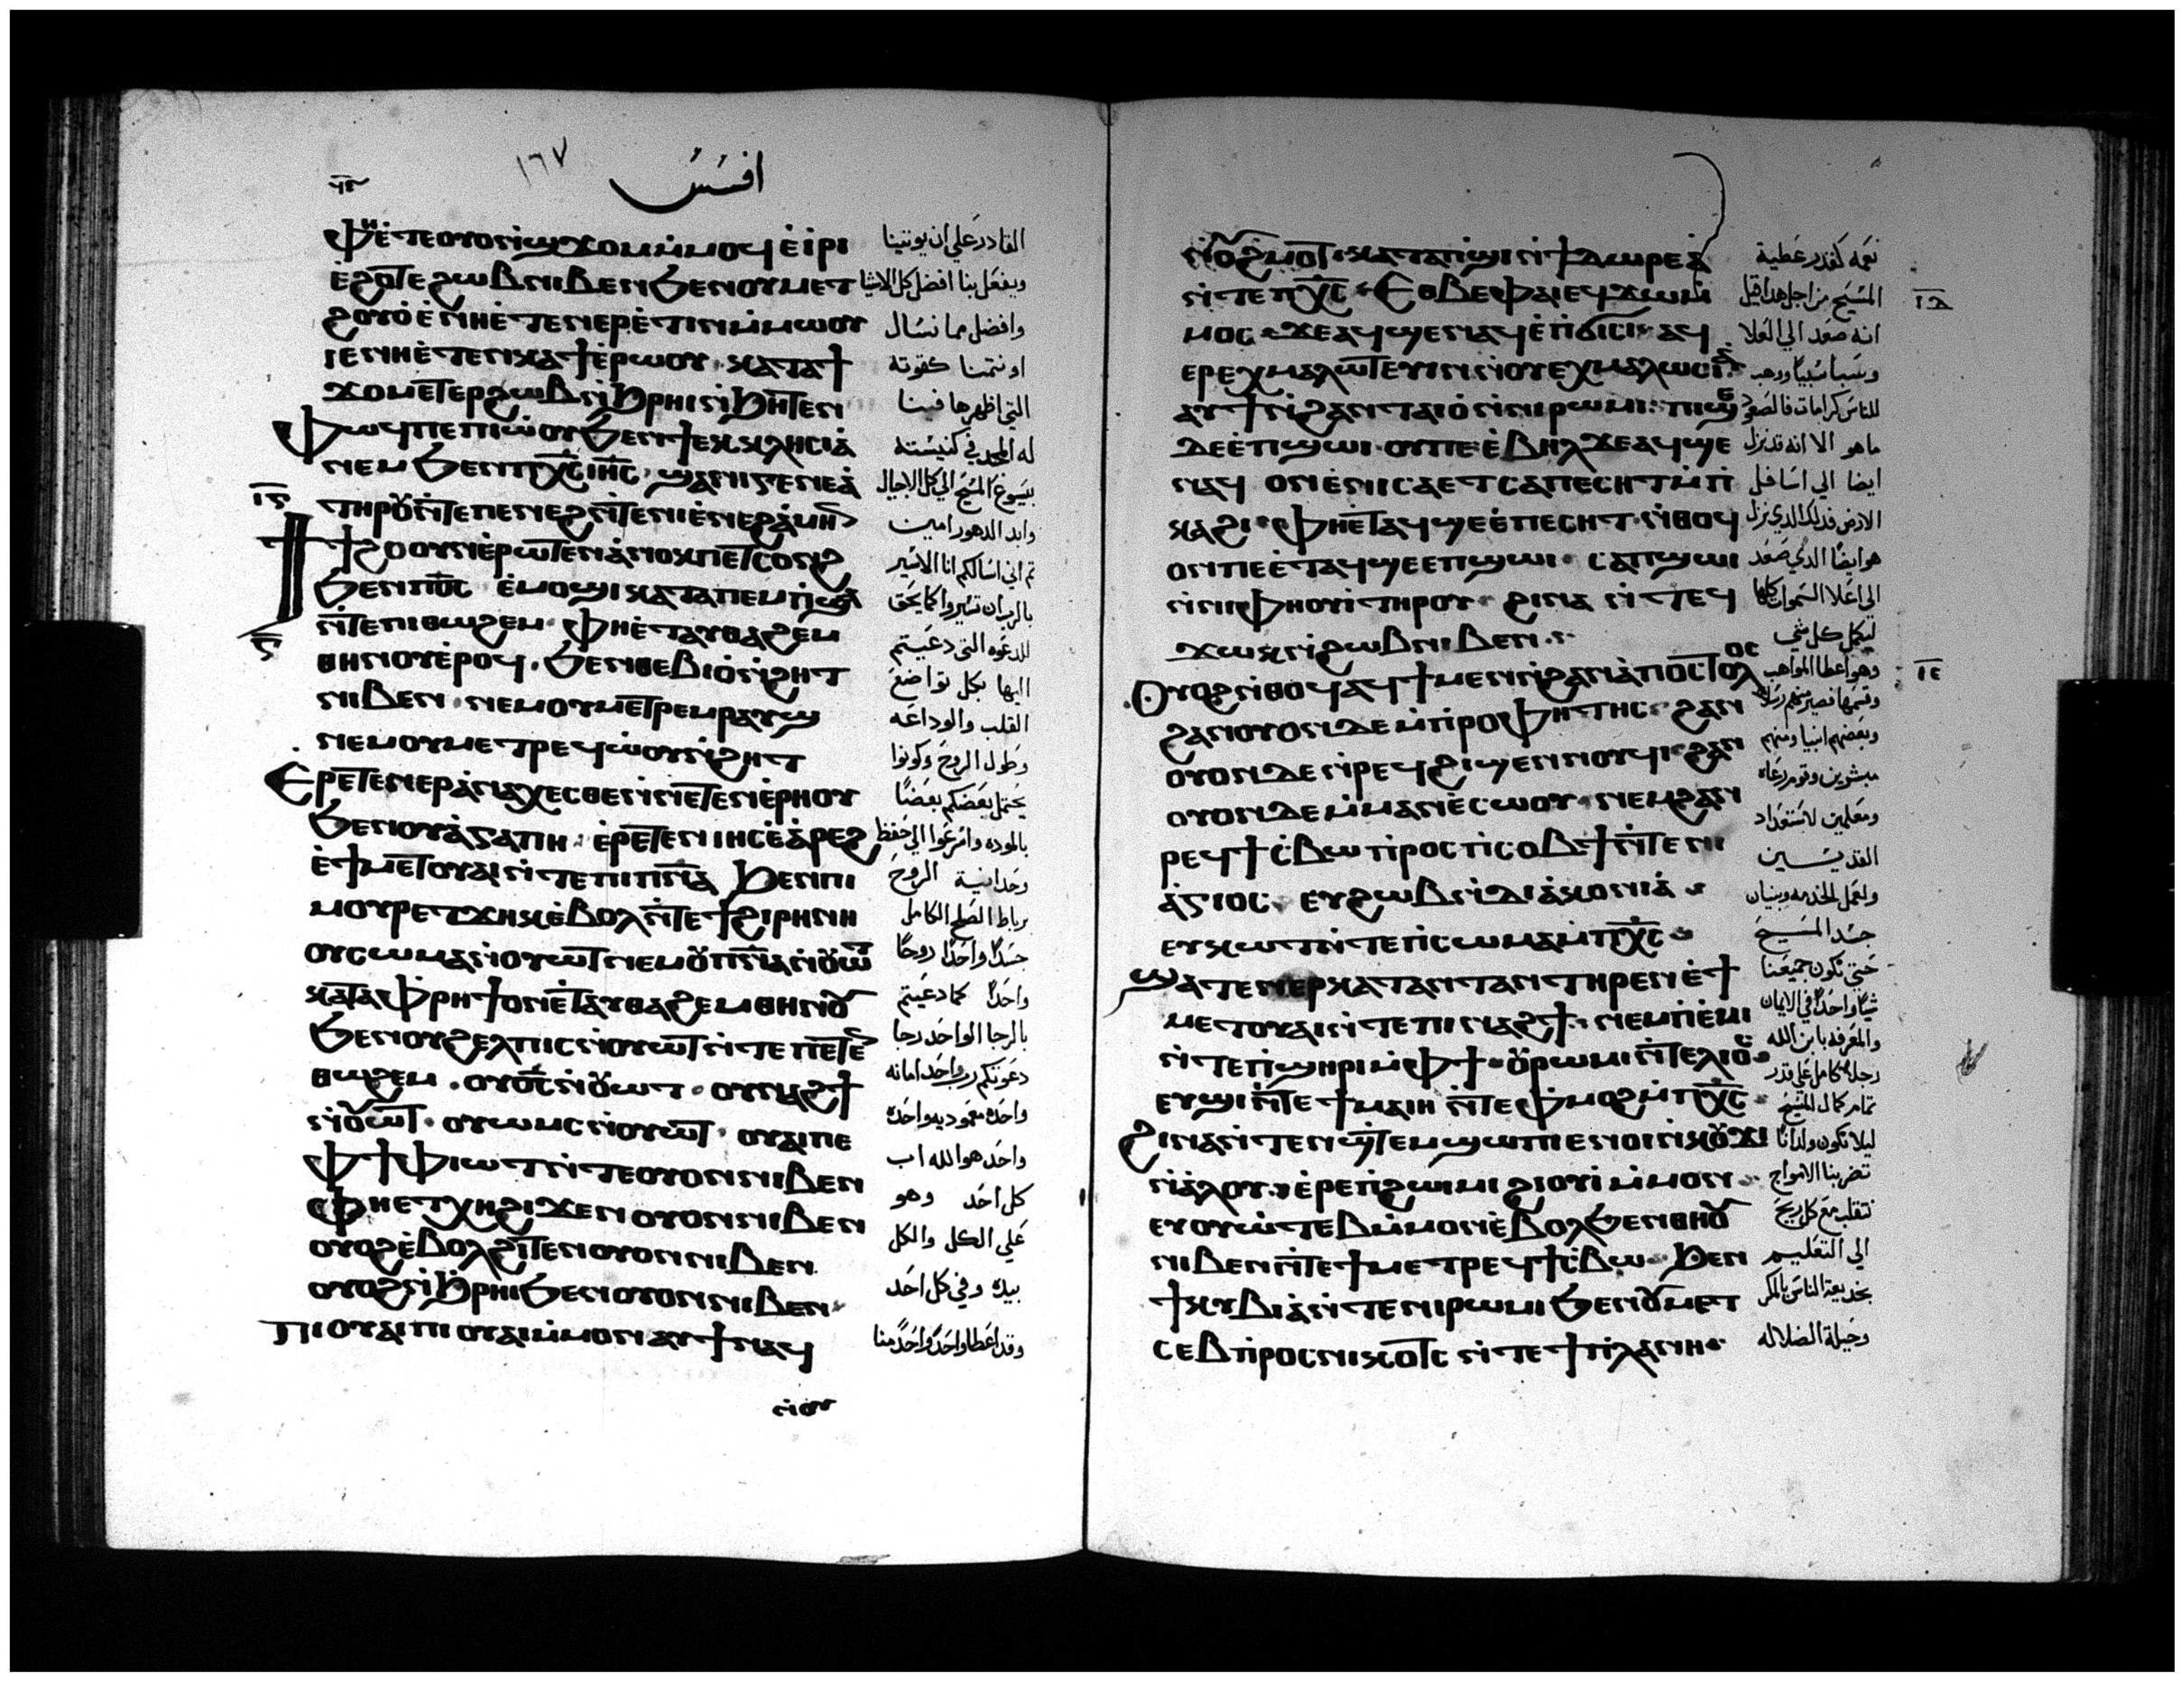 افسس
١٦٧
ⲫⲏⲉ̀ⲧⲉⲟⲩⲟⲛϣϫⲟⲙⲙ̀ⲙⲟϥⲉ̀ⲓⲣⲓ
ⲉ̀ϩⲟⲧⲉϩⲱⲃⲛⲓⲃⲉⲛϧⲉⲛⲟⲩⲙⲉⲧ
ϩⲟⲩⲟ̀ⲉ̀ⲛⲏⲉ̀ⲧⲉⲛⲉⲣⲉ̀ⲧⲓⲛⲙ̀ⲙⲱⲟⲩ
ⲓⲉⲛⲏⲉ̀ⲧⲉⲛⲕⲁϯⲉ̀ⲣⲱⲟⲩ· ⲕⲁⲧⲁϯ
ϫⲟⲙⲉⲧⲉⲣϩⲱⲃⲛ̀ϧⲣⲏⲓⲛ̀ϧⲏⲧⲉⲛ
ⲫⲱϥⲡⲉⲡⲓⲱ̀ⲟⲩϧⲉⲛϯⲉⲕⲕⲗⲏⲥⲓⲁ̀
ⲛⲉⲙϧⲉⲛⲡⲭ̅ⲥ̅ⲓⲏ̅ⲥ̅· ϣⲁⲛⲓⲅⲉⲛⲉⲁ̀
ⲧⲏⲣⲟⲩⲛ̀ⲧⲉⲡⲉⲛⲉϩⲛ̀ⲧⲉⲛⲓⲉ̀ⲛⲉϩⲁ̀ⲙⲏⲛ
ⲓ̅ⲋ̅
ϯϯϩⲟⲟⲩⲛⲉ̀ⲣⲱⲧⲉⲛⲁ̀ⲛⲟⲕⲡⲉⲧⲥⲟⲛϩ
ϧⲉⲛⲡⲟ̅ⲥ̅ ⲉ̀ⲙⲟϣⲓⲕⲁⲧⲁⲡⲉⲙⲡ̀ϣⲁ
ⲛ̀ⲧⲉⲡⲓⲑⲱϩⲉⲙ· ⲫⲏⲉ̀ⲧⲁⲩⲑⲁϩⲉⲙ
ⲑⲏⲛⲟⲩⲉ̀ⲣⲟϥ. ϧⲉⲛⲑⲉⲃⲓⲟ̀ⲛ̀ϩⲏⲧ
ⲛⲓⲃⲉⲛ· ⲛⲉⲙⲟⲩⲙⲉⲧⲣⲉⲙⲣⲁⲩϣ
ⲛⲉⲙⲟⲩⲙⲉⲧⲣⲉϥⲱ̀ⲟⲩⲛ̀ϩⲏⲧ
ⲉⲣⲉⲧⲉⲛⲉⲣⲁ̀ⲛⲁⲭⲉⲥⲑⲉⲛ̀ⲛⲉⲧⲉⲛⲉ̀ⲣⲏⲟⲩ
ϧⲉⲛⲟⲩⲁ̀ⲅⲁⲡⲏ· ⲉ̀ⲣⲉⲧⲉⲛⲓⲏⲥⲉ̀ⲁ̀ⲣⲉϩ
ⲉ̀ϯⲙⲉⲧⲟⲩⲁⲓⲛ̀ⲧⲉⲡⲓⲡ̅ⲛ̅ⲁ̅ ϧⲉⲛⲡⲓ
ⲙⲟⲩⲣⲉⲧϫⲏⲕⲉ̀ⲃⲟⲗⲛ̀ⲧⲉϯϩⲓⲣⲏⲛⲏ
ⲟⲩⲥⲱⲙⲁⲛⲟⲩⲱⲧⲛⲉⲙⲟⲩⲡ̅ⲛ̅ⲁ̅ⲛⲟⲩⲱⲧ
ⲕⲁⲧⲁⲫⲣⲏϯⲟⲛⲉ̀ⲧⲁⲩⲑⲁϩⲉⲙⲑⲏⲛⲟⲩ
ϧⲉⲛⲟⲩϩⲉⲗⲡⲓⲥⲛⲟⲩⲱⲧⲛ̀ⲧⲉⲡⲉⲧⲉⲛ
ⲑⲱϩⲉⲙ. ⲟⲩⲟ̅ⲥ̅ⲛ̀ⲟⲩⲱⲧ· ⲟⲩⲛⲁϩϯ
ⲛ̀ⲟⲩⲱⲧ· ⲟⲩⲱⲙⲥⲛⲟⲩⲱⲧ· ⲟⲩⲁⲓⲡⲉ
ⲫϯⲫⲓⲱⲧⲛ̀ⲧⲉⲟⲩⲟⲛⲛⲓⲃⲉⲛ
ⲫⲏⲉⲧⲭⲏϩⲓϫⲉⲛⲟⲩⲟⲛⲛⲓⲃⲉⲛ
ⲟⲩⲟϩⲉ̀ⲃⲟⲗϩⲓⲧⲉⲛⲟⲩⲟⲛⲛⲓⲃⲉⲛ
ⲟⲩⲟϩⲛ̀ϧⲣⲏⲓϧⲉⲛⲟⲩⲟⲛⲛⲓⲃⲉⲛ·
ⲡⲓⲟⲩⲁⲓⲡⲓⲟⲩⲁⲓⲙ̀ⲙⲟⲛⲁⲩϯⲛⲁϥ
ⲛ̀ⲟⲩ
القادر علي ان يوتينا
ويفعل بنا افضل كل الاشيا
وافضل مما نسال
او نتمنا كقوته
التي اظهرها فينا
له المجد في كنيسته
بيسوع المسيح الي كل الاجيال
وابد الدهور امين
ثم اني اسالكم انا الاسير
بالرب ان تسيروا كما يحق
للدعوه التي دعيتم
اليها بكل تواضع
القلب والوداعه
وطول الروح وكونوا
يحتمل بعضكم بعضًا
بالموده واسرعوا الي حفظ
وحدانية الروح
برباط الصلح الكامل
جسدًا واحدًا روحًا
واحدًا كما دعيتم
بالرجا الواحد رجا
دعوتكم رب واحد امانه
واحده معموديه واحده
واحد هو الله اب
كل احد وهو
علي الكل والكل
بيده وفي كل احد
وقد اعطا واحدًا واحدًا منا
ⲛ̀ⲟⲩϩⲙⲟⲧ· ⲕⲁⲧⲁⲡϣⲓⲛ̀ϯⲇⲱⲣⲉⲁ̀
ⲛ̀ⲧⲉⲡⲭ̅ⲥ̅· ⲉⲑⲃⲉⲫⲁⲓⲉϥϫⲱⲙ̀
ⲙⲟⲥ· ϫⲉⲁϥϣⲉⲛⲁϥⲉ̀ⲡϭⲓⲥⲓ· ⲁϥ
ⲉⲣⲉⲭⲙⲁⲗⲱⲧⲉⲩⲓⲛⲛ̀ⲟⲩⲉⲭⲙⲁⲗⲱⲥⲓⲁ̀
ⲁⲩϯⲛ̀ϩⲁⲛⲧⲁⲓⲟ̀ⲛ̀ⲛⲓⲣⲱⲙⲓ· ⲡⲓϣⲉ
ⲇⲉⲉ̀ⲡϣⲱⲓ· ⲟⲩⲡⲉⲉ̀ⲃⲏⲗϫⲉⲁϥϣⲉ
ⲛⲁϥ ⲟⲛⲉ̀ⲛⲓⲥⲁⲉⲧⲥⲁⲡⲉⲥⲏⲧⲙ̀ⲡ
ⲕⲁϩⲓ· ⲫⲏⲉⲧⲁϥϣⲉⲉ̀ⲡⲉⲥⲏⲧ· ⲛ̀ⲑⲟϥ
ⲟⲛⲡⲉⲉ̀ⲧⲁϥϣⲉⲉⲡϣⲱⲓ· ⲥⲁⲡϣⲱⲓ
ⲛ̀ⲛⲓⲫⲏⲟⲩⲓ̀ⲧⲏⲣⲟⲩ· ϩⲓⲛⲁ ⲛ̀ⲧⲉϥ
ϫⲱⲕⲛ̀ϩⲱⲃⲛⲓⲃⲉⲛ.
ⲟⲩⲟϩⲛ̀ⲑⲟϥⲁϥϯⲙⲉⲛⲛ̀ϩⲁⲛⲁ̀ⲡⲟⲥⲧⲟⲗⲟⲥ
ϩⲁⲛⲟⲩⲟⲛⲇⲉⲙ̀ⲡⲣⲟⲫⲏⲧⲏⲥ· ϩⲁⲛ
ⲟⲩⲟⲛⲇⲉⲛ̀ⲣⲉϥϩⲓϣⲉⲛⲛⲟⲩϥⲓ· ϩⲁⲛ
ⲟⲩⲟⲛⲇⲉⲙ̀ⲙⲁⲛⲉ̀ⲥⲱⲟⲩ· ⲛⲉⲙϩⲁⲛ
ⲣⲉϥϯⲥ̀ⲃⲱⲡⲣⲟⲥⲡⲥⲟⲃϯⲛ̀ⲧⲉⲛⲓ
ⲁ̀ⲅⲓⲟⲥ· ⲉⲩϩⲱⲃⲛ̀ⲇⲓⲁ̀ⲕⲟⲛⲓⲁ̀·
ⲉⲩⲕⲱⲧⲛ̀ⲧⲉⲡⲥⲱⲙⲁⲙ̀ⲡⲭ̅ⲥ̅·
ϣⲁⲧⲉⲛⲉⲣⲕⲁⲧⲁⲛⲧⲁⲛⲧⲏⲣⲉⲛⲉ̀ϯ
ⲙⲉⲧⲟⲩⲁⲓⲛ̀ⲧⲉⲡⲓⲛⲁϩϯ· ⲛⲉⲙⲡⲉ̀ⲙⲓ
ⲛ̀ⲧⲉⲡϣⲏⲣⲓⲙ̀ⲫϯ· ⲟⲩⲣⲱⲙⲓⲛ̀ⲧⲉⲗⲓⲟⲥ·
ⲉⲩϣⲓⲛ̀ⲧⲉϯⲙⲁⲓⲏ ⲛ̀ⲧⲉⲫⲙⲟϩⲙ̀ⲡⲭ̅ⲥ̅·
ϩⲓⲛⲁⲛ̀ⲧⲉⲛϣⲧⲉⲙϣⲱⲡⲉⲛⲟⲓⲛ̀ⲕⲟⲩϫⲓ
ⲛ̀ⲁ̀ⲗⲟⲩ· ⲉ̀ⲣⲉⲡϩⲱⲓⲙⲓϩⲓⲟⲩⲓ̀ⲙ̀ⲙⲟⲛ·
ⲉⲩⲟⲩⲱ̀ⲧⲉⲃⲙ̀ⲙⲟⲛⲉ̀ⲃⲟⲗϧⲉⲛⲑⲏⲟⲩ
ⲛⲓⲃⲉⲛⲛ̀ⲧⲉϯⲙⲉⲧⲣⲉϥϯⲥ̀ⲃⲱ· ϧⲉⲛ
ϯⲕⲩⲃⲓⲁ̀ⲛ̀ⲧⲉⲛⲓⲣⲱⲙⲓϧⲉⲛⲟⲩⲙⲉⲧ
ⲥⲉⲃⲡⲣⲟⲥⲛⲓⲕⲟⲧⲥ ⲛ̀ⲧⲉϯⲡⲗⲁⲛⲏ·
نعمه كقدر عطية
المسيح من اجل هدا قيل
انه صعد الي العلا
وسبا سبيًا ووهب
للناس كرامات فالصعود
ما هو الا انه قد نزل
ايضا الي اسافل
الارض فدلك الدي نزل
هو ايضًا الدي صعد
الي اعلا السموات كلها
ليكمل كل شي
وهو اعطا المواهب
وبعضهم انبيا ومنهم
مبشرين وقوم رعاه
ومعلمين لاستعداد
القديسين
ولعمل الخدمه وبنيان
جسد المسيح
حتي نكون جميعنا
شيًا واحدًا في الايمان
والمعرفه بابن الله
رجلا كامل علي قدر
تمام كمال المسيح
ليلا نكون ولدانًا
تضربنا الامواج
نتقلب مع كل ريح
الي التعليم
بخديعة الناس بالمكر
وحيلة الضلاله
ⲓ̅ⲇ̅
ⲓ̅ⲉ̅